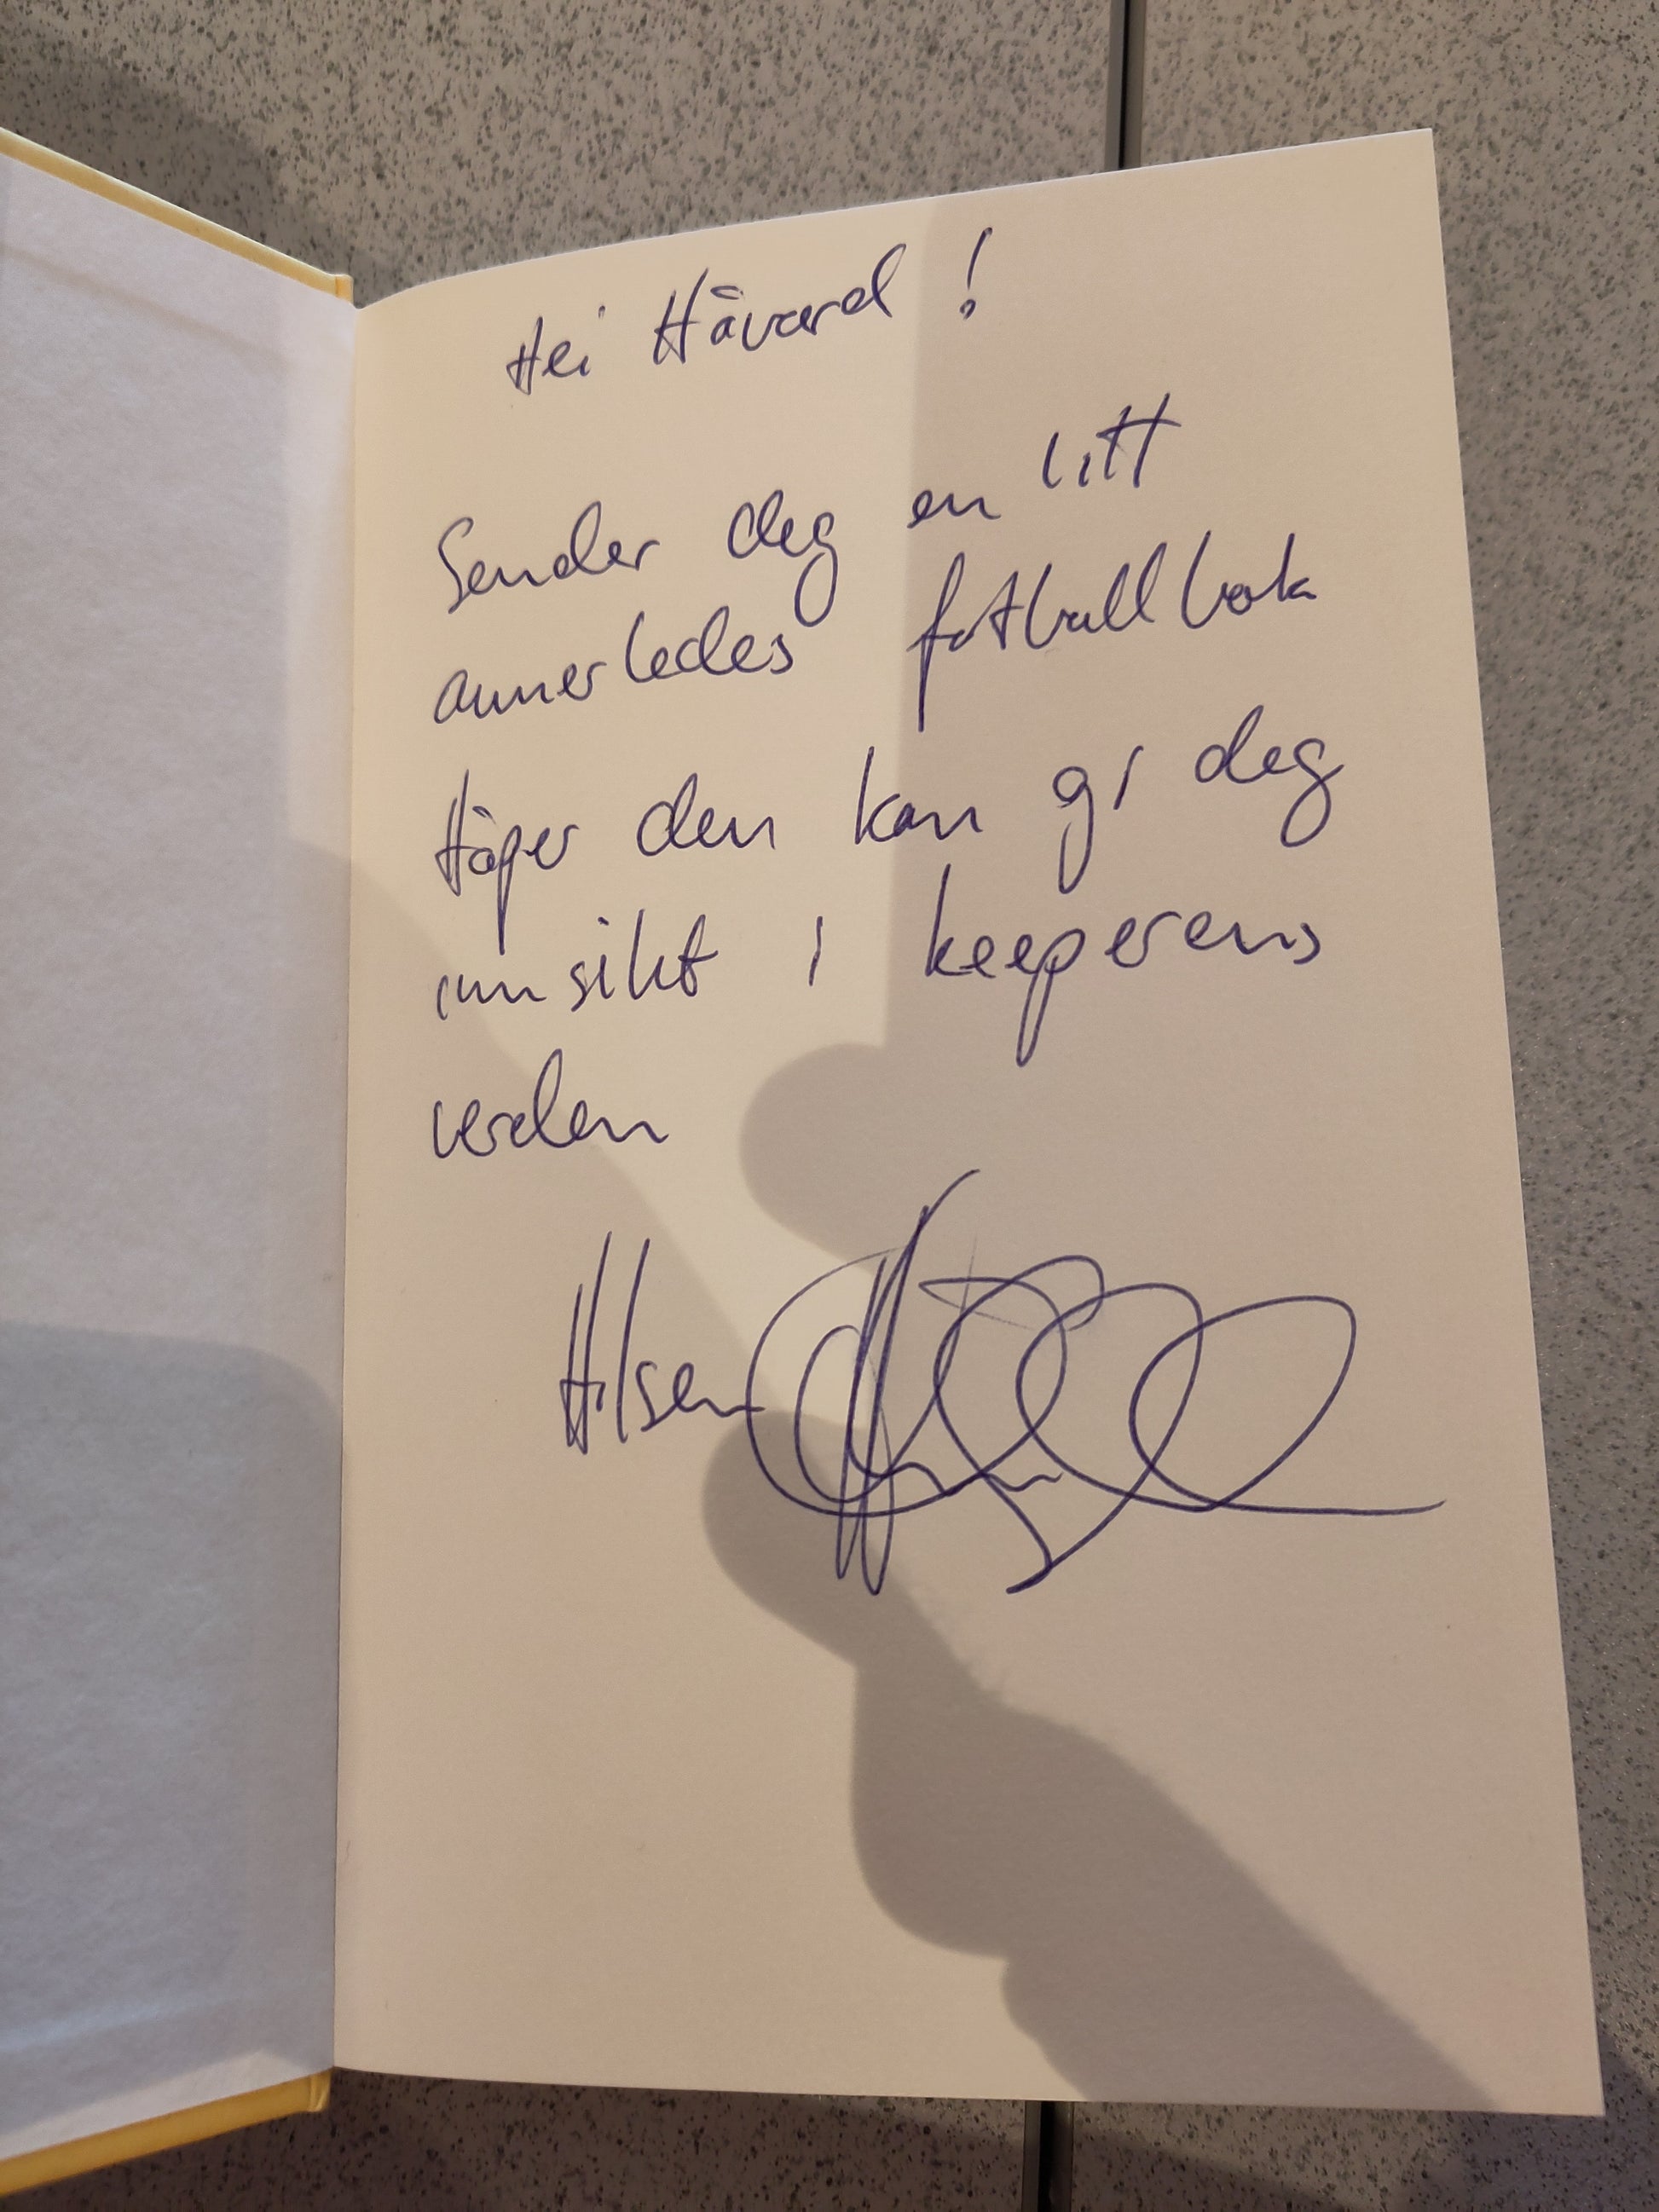 Hei Håvard !
Sender deg en litt
annerledes fotballbok
Håper den kan gi deg
innsikt i keeperens
verden
Hilsen